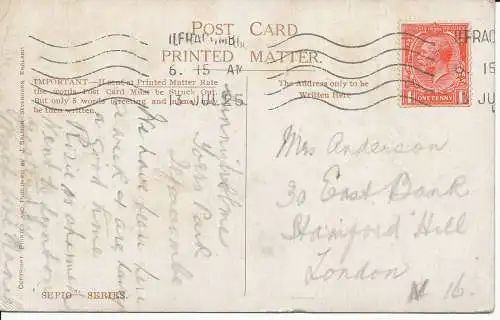 POST CARD
PRINTED MATTER.
ILFRACOMBE
6. 15 AM
13 JUL 25
ILFRAC
6. 15
JU
IMPORTANT—If sent at Printed Matter Rate
the words Post Card Must be Struck Out,
but only 5 words (greeting and name) may
be then written.
The Address only to be
Written Here.
ONE PENNY
COPYRIGHT PRINTED AND PUBLISHED BY J. SALMON, SEVENOAKS, ENGLAND
Sunnyholme
Ilfracombe
We have been here
a week & are having
a good time
went to Lynton
Mrs Anderson
30 East Bank
Stamford Hill
London
N 16.
"SEPIO" SERIES.